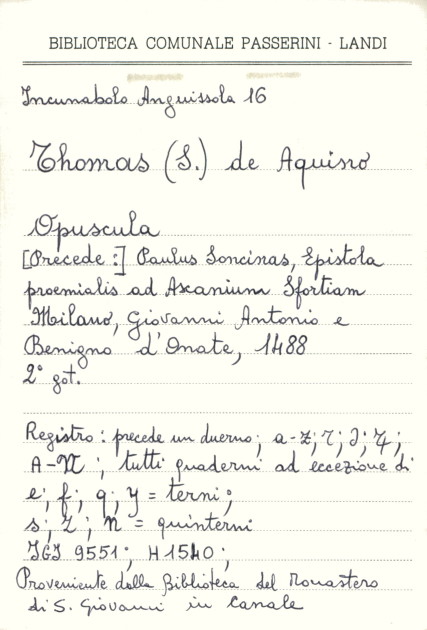 BIBLIOTECA COMUNALE PASSERINI - LANDI
Incunabolo Anguissola 16
Thomas (S.) de Aquino
Opuscula
[Precede:] Paulus Soncinas, Epistola
proemialis ad Ascanium Sfortiam
Milano, Giovanni Antonio e
Benigno d'Onate, 1488
2° got.
Registro: precede un duerno; a-z;
A-N; tutti quaderni ad eccezione di
e; f; q; y = terni;
s; z; n = quinterni
IGI 9551; H 1540;
Proveniente dalla Biblioteca del Monastero
di S. Giovanni in Canale